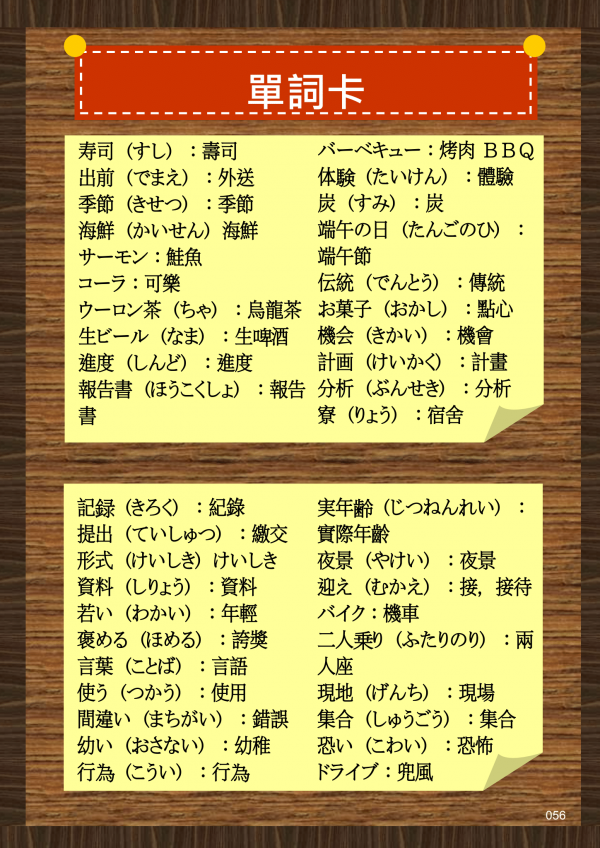 單詞卡
寿司（すし）：壽司
出前（でまえ）：外送
季節（きせつ）：季節
海鮮（かいせん）海鮮
サーモン：鮭魚
コーラ：可樂
ウーロン茶（ちゃ）：烏龍茶
生ビール（なま）：生啤酒
進度（しんど）：進度
報告書（ほうこくしょ）：報告
書
バーベキュー：烤肉ＢＢＱ
体験（たいけん）：體驗
炭（すみ）：炭
端午の日（たんごのひ）：
端午節
伝統（でんとう）：傳統
お菓子（おかし）：點心
機会（きかい）：機會
計画（けいかく）：計畫
分析（ぶんせき）：分析
寮（りょう）：宿舍
記録（きろく）：紀錄
提出（ていしゅつ）：繳交
形式（けいしき）けいしき
資料（しりょう）：資料
若い（わかい）：年輕
褒める（ほめる）：誇獎
言葉（ことば）：言語
使う（つかう）：使用
間違い（まちがい）：錯誤
幼い（おさない）：幼稚
行為（こうい）：行為
実年齢（じつねんれい）：
實際年齡
夜景（やけい）：夜景
迎え（むかえ）：接，接待
バイク：機車
二人乗り（ふたりのり）：兩
人座
現地（げんち）：現場
集合（しゅうごう）：集合
恐い（こわい）：恐怖
ドライブ：兜風
056